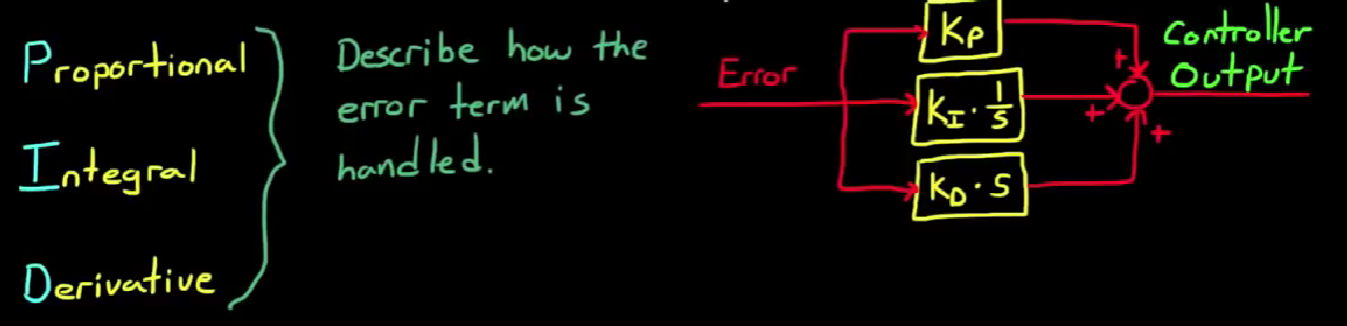 Proportional
Integral
Derivative
Describe how the
error term is
handled.
Error
KP
KI · 1/S
KD · S
+
+
+
Controller
Output